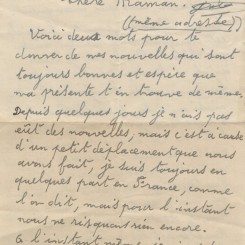 Chère Maman.
(même adresse)
Voici deux mots pour te
donner de mes nouvelles qui sont
toujours bonnes et espère que
ma présente t'en trouve de même.
Depuis quelques jours je n'ais pas
eût des nouvelles, mais c'est à cause
d'un petit déplacement que nous
avons fait, je suis toujours en
quelques part en France, comme
l'on dit, mais pour l'instant
nous ne risquons rien encore.
A l'instant